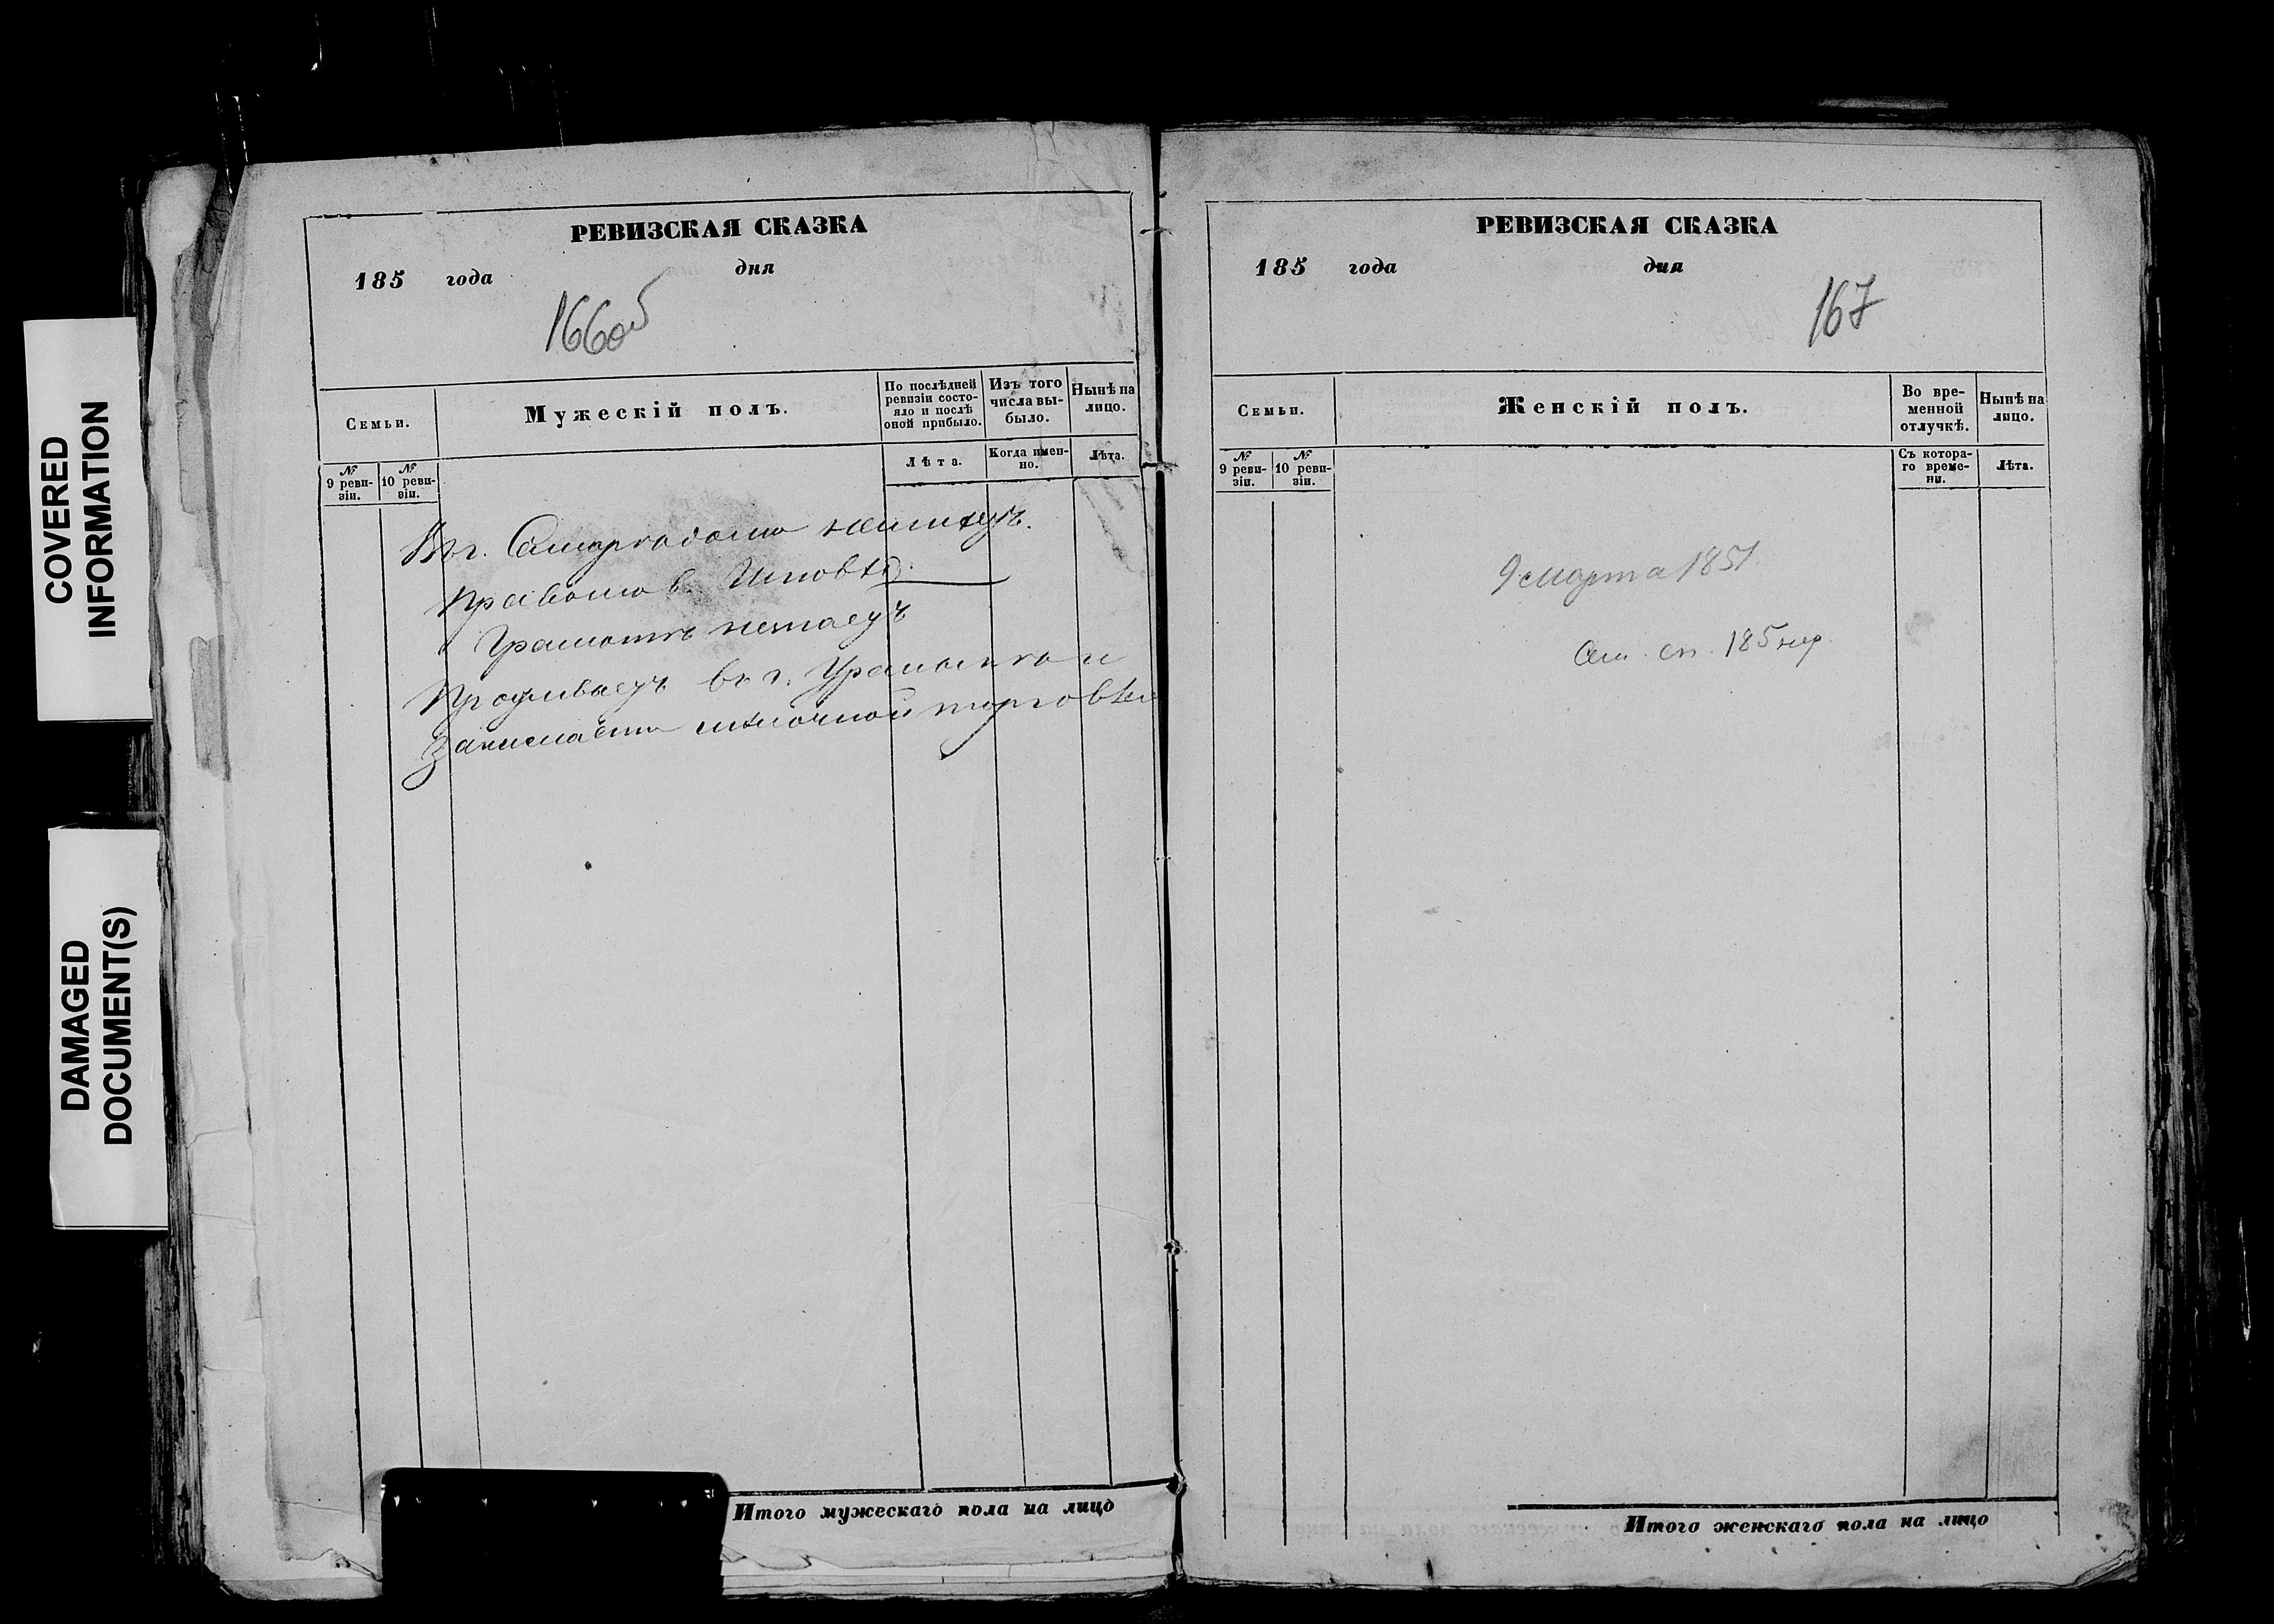 COVERED
INFORMATION
DAMAGED
DOCUMENT(S)
РЕВИЗСКАЯ СКАЗКА
185 года дня
166об
Семьи.
Мужескій полъ.
По послѣдней
ревизіи состо-
яло и послѣ
оной прибыло.
Изъ того
числа вы-
было.
Нынѣ на
лицо.
№
9 реви-
зіи.
№
10 реви-
зіи.
Лѣта.
Когда имен-
но.
Лѣта.
Въ г.
Православ. Исповѣд.
Грамотѣ незнаетъ
Проживаетъ въ г. и
Занимается мѣлочной торговлею
Итого мужескаго пола на лицо
РЕВИЗСКАЯ СКАЗКА
185 года дня
167
Семьи.
Женскій полъ.
Во вре-
менной
отлучкѣ.
Нынѣ на
лицо.
№
9 реви-
зіи.
№
10 реви-
зіи.
Съ котора-
го време-
ни.
Лѣта.
9 марта 1851
сп. 185
Итого женскаго пола на лицо